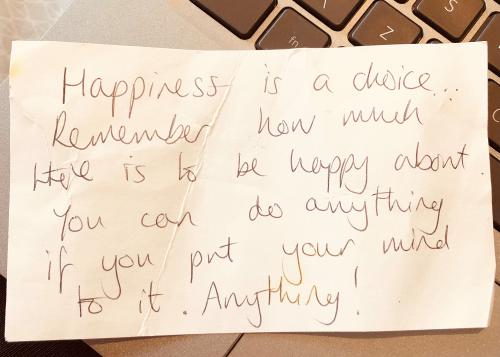 fn
Z
S
Happiness is a choice...
Remember how much
there is to be happy about.
You can do anything
if you put your mind
to it. Anything!